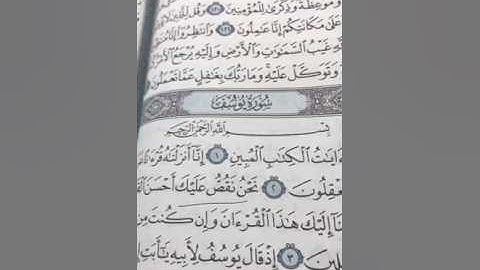 وَمَوْعِظَةٌ وَذِكْرَىٰ لِلْمُؤْمِنِينَ ١٢٠ وَقُل لِّلَّذِينَ
عَلَىٰ مَكَانَتِكُمْ إِنَّا عَامِلُونَ ١٢١ وَانتَظِرُوا
غَيْبُ السَّمَاوَاتِ وَالْأَرْضِ وَإِلَيْهِ يُرْجَعُ
وَتَوَكَّلْ عَلَيْهِ وَمَا رَبُّكَ بِغَافِلٍ عَمَّا تَعْمَلُونَ
سُورَةُ يُوسُفَ
بِسْمِ اللَّهِ الرَّحْمَٰنِ الرَّحِيمِ
ءَايَاتُ الْكِتَابِ الْمُبِينِ ١ إِنَّا أَنزَلْنَاهُ
تَعْقِلُونَ ٢ نَحْنُ نَقُصُّ عَلَيْكَ أَحْسَنَ
إِلَيْكَ هَٰذَا الْقُرْءَانَ وَإِن كُنتَ مِن
٣ إِذْ قَالَ يُوسُفُ لِأَبِيهِ يَا أَبَتِ